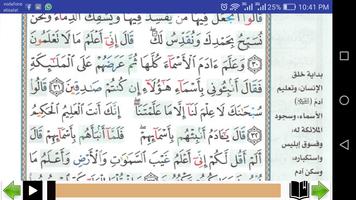 vodafone
etisalat
59%
25%
10:41 PM
قَالُوٓا۟ أَتَجْعَلُ فِيهَا مَن يُفْسِدُ فِيهَا وَيَسْفِكُ ٱلدِّمَآءَ وَنَحْنُ
نُسَبِّحُ بِحَمْدِكَ وَنُقَدِّسُ لَكَ قَالَ إِنِّىٓ أَعْلَمُ مَا لَا تَعْلَمُونَ
٣٠ وَعَلَّمَ ءَادَمَ ٱلْأَسْمَآءَ كُلَّهَا ثُمَّ عَرَضَهُمْ عَلَى ٱلْمَلَٰٓئِكَةِ
فَقَالَ أَنۢبِـُٔونِى بِأَسْمَآءِ هَٰٓؤُلَآءِ إِن كُنتُمْ صَٰدِقِينَ ٣١ قَالُوا۟
سُبْحَٰنَكَ لَا عِلْمَ لَنَآ إِلَّا مَا عَلَّمْتَنَآ إِنَّكَ أَنتَ ٱلْعَلِيمُ ٱلْحَكِيمُ
٣٢ قَالَ يَٰٓـَٔادَمُ أَنۢبِئْهُم بِأَسْمَآئِهِمْ فَلَمَّآ أَنۢبَأَهُم بِأَسْمَآئِهِمْ قَالَ
أَلَمْ أَقُل لَّكُمْ إِنِّىٓ أَعْلَمُ غَيْبَ ٱلسَّمَٰوَٰتِ وَٱلْأَرْضِ وَأَعْلَمُ مَا
بداية خلق
الإنسان، وتعليم
آدم الأسماء
الأسماء، وسجود
الملائكة له،
وفسوق إبليس
واستكباره،
وسكن آدم